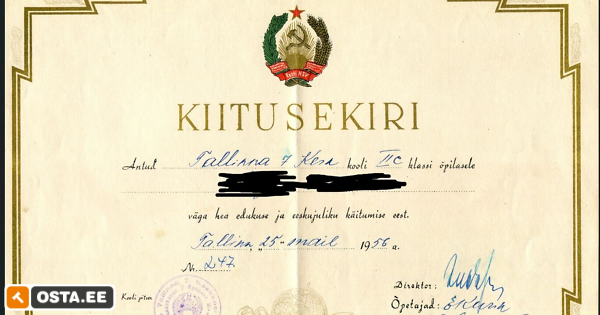 Eesti NSV
KIITUSEKIRI
Antud Tallinna 7 Kesk kooli IIc klassi õpilasele
väga hea edukuse ja eeskujuliku käitumise eest.
Tallinn, „25" mail 1956 a.
Nr. 247
Direktor:
Kooli pitser
Õpetajad:
OSTA.EE